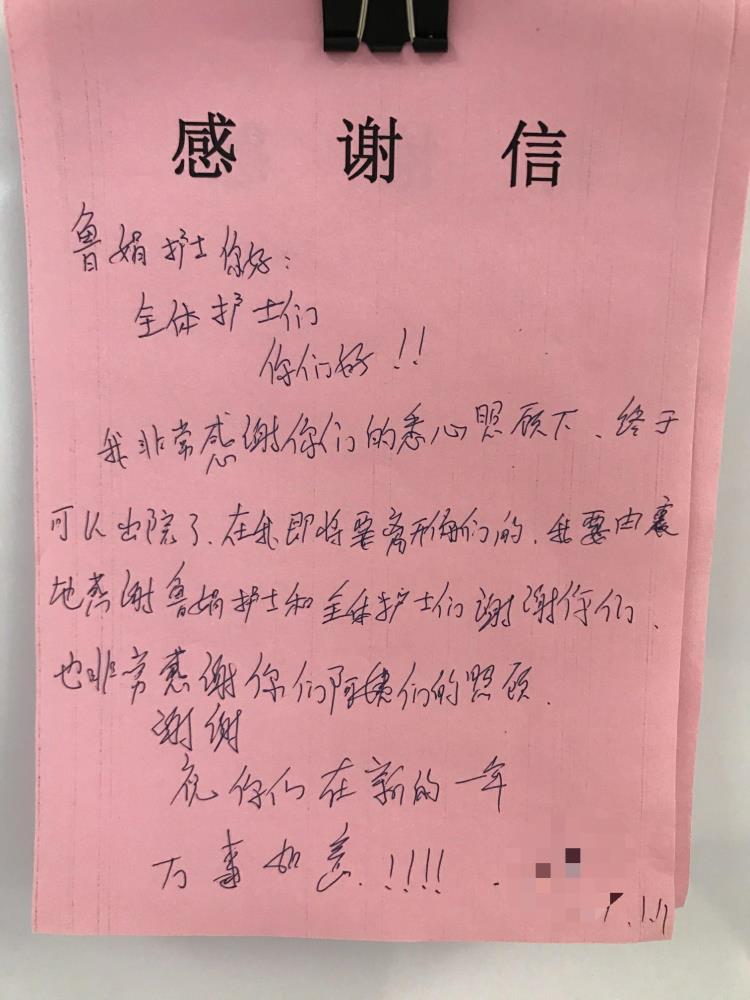 感谢信
鲁娟护士你好：
全体护士们
你们好！！
我非常感谢你们的悉心照顾下、终于
可以出院了、在我即将要离开你们的、我要由衷
地感谢鲁娟护士和全体护士们谢谢你们、
也非常感谢你们阿姨们的照顾、
谢谢
祝你们在新的一年
万事如意、！！！！